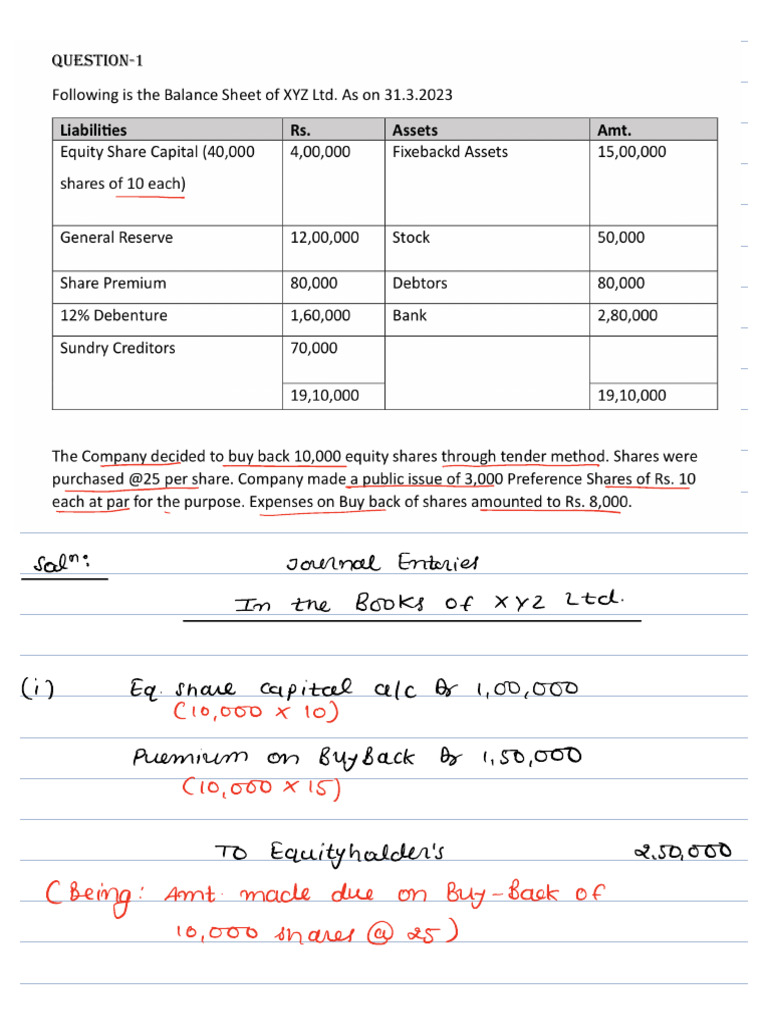 QUESTION-1
Following is the Balance Sheet of XYZ Ltd. As on 31.3.2023
Liabilities Rs. Assets Amt.
Equity Share Capital (40,000 4,00,000 Fixebackd Assets 15,00,000
shares of 10 each)
General Reserve 12,00,000 Stock 50,000
Share Premium 80,000 Debtors 80,000
12% Debenture 1,60,000 Bank 2,80,000
Sundry Creditors 70,000
19,10,000 19,10,000
The Company decided to buy back 10,000 equity shares through tender method. Shares were
purchased @25 per share. Company made a public issue of 3,000 Preference Shares of Rs. 10
each at par for the purpose. Expenses on Buy back of shares amounted to Rs. 8,000.
Solⁿ: Journal Enteries
In the Books of XYZ Ltd.
(i) Eq. share capital a/c Dr 1,00,000
(10,000 x 10)
Premium on BuyBack Dr 1,50,000
(10,000 x 15)
To Equityholder's 2,50,000
(Being: Amt. made due on Buy-Back of
10,000 shares @ 25)